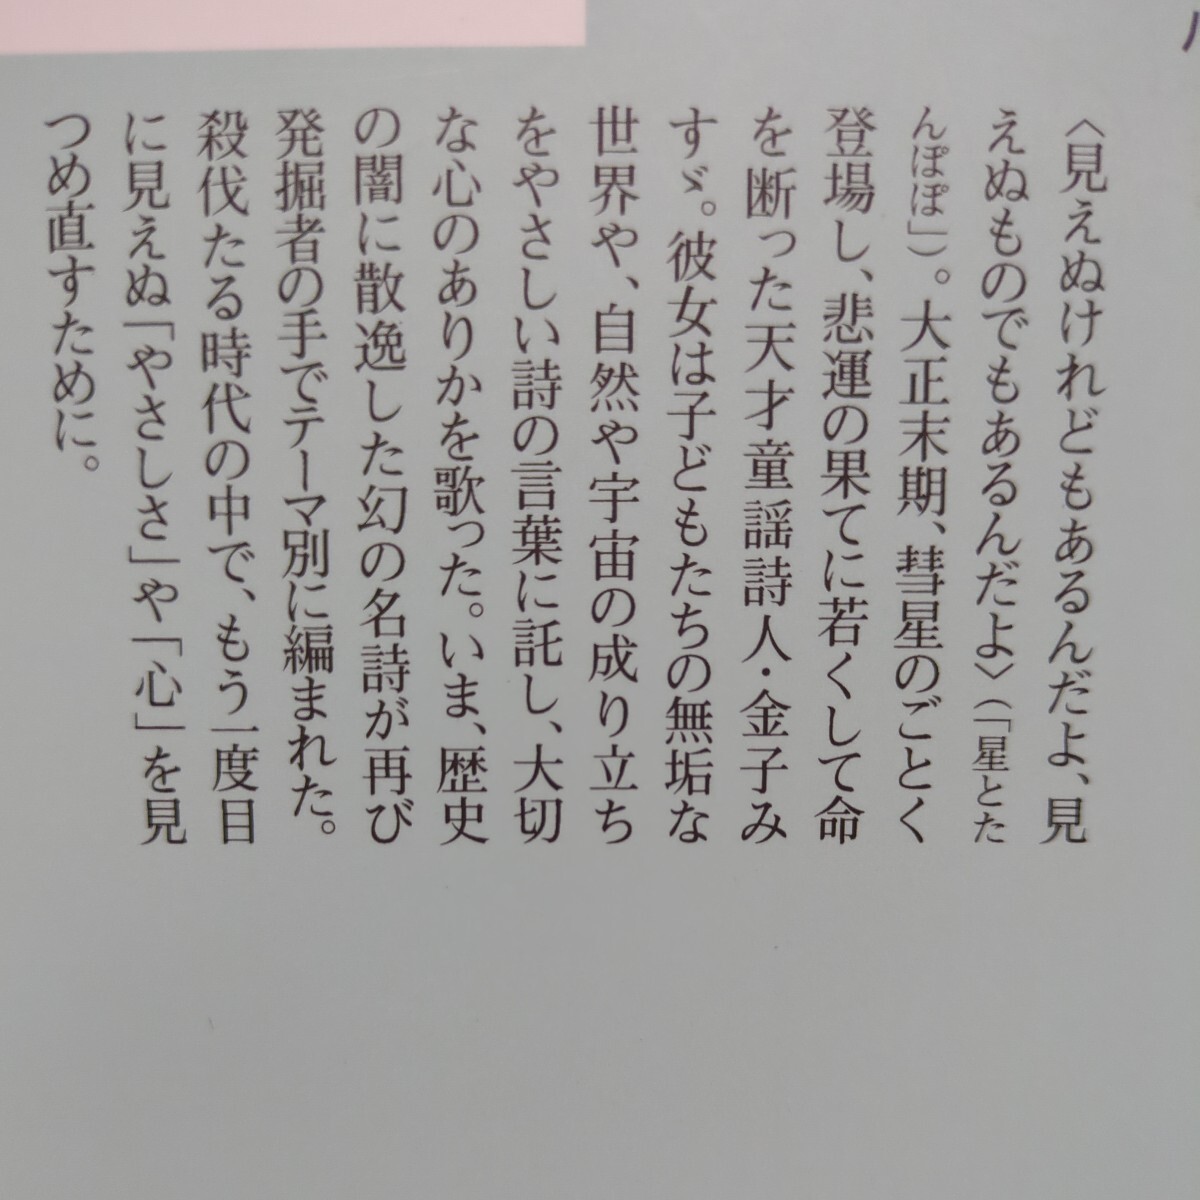 〈見えぬけれどもあるんだよ、見
えぬものでもあるんだよ〉（「星とた
んぽぽ」）。大正末期、彗星のごとく
登場し、悲運の果てに若くして命
を断った天才童謡詩人・金子み
すゞ。彼女は子どもたちの無垢な
世界や、自然や宇宙の成り立ち
をやさしい詩の言葉に託し、大切
な心のありかを歌った。いま、歴史
の闇に散逸した幻の名詩が再び
発掘者の手でテーマ別に編まれた。
殺伐たる時代の中で、もう一度目
に見えぬ「やさしさ」や「心」を見
つめ直すために。